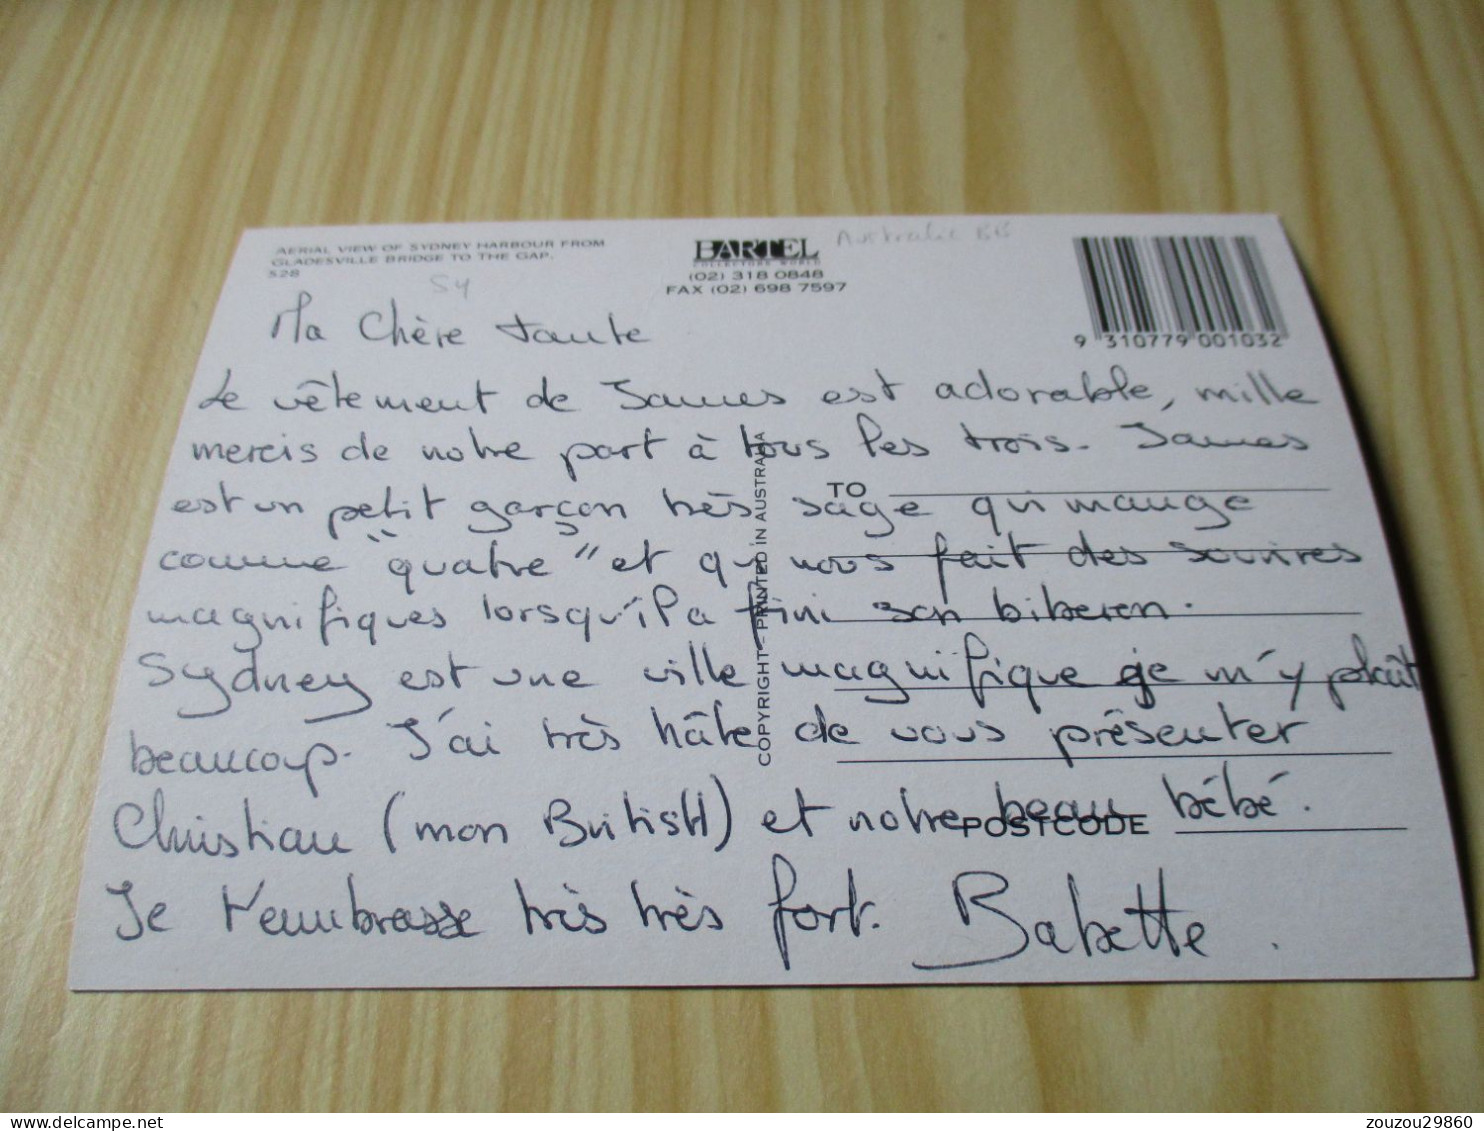 AERIAL VIEW OF SYDNEY HARBOUR FROM
GLADESVILLE BRIDGE TO THE GAP.
S28
BARTEL
COLLECTORS WORLD
(02) 318 0848
FAX (02) 698 7597
Australie
9 310779 001032
Ma Chère tante
Le vêtement de James est adorable, mille
mercis de notre part à tous les trois. James
est un petit garçon très sage qui mange
comme "quatre" et qui nous fait des sourires
magnifiques lorsqu'il a fini son biberon.
Sydney est une ville magnifique je m'y plaît
beaucoup. J'ai très hâte de vous présenter
Christian (mon British) et notre beau bébé.
Je t'embrasse très très fort. Babette.
COPYRIGHT - PRINTED IN AUSTRALIA
TO
POSTCODE
delcampe.net
zouzou29860